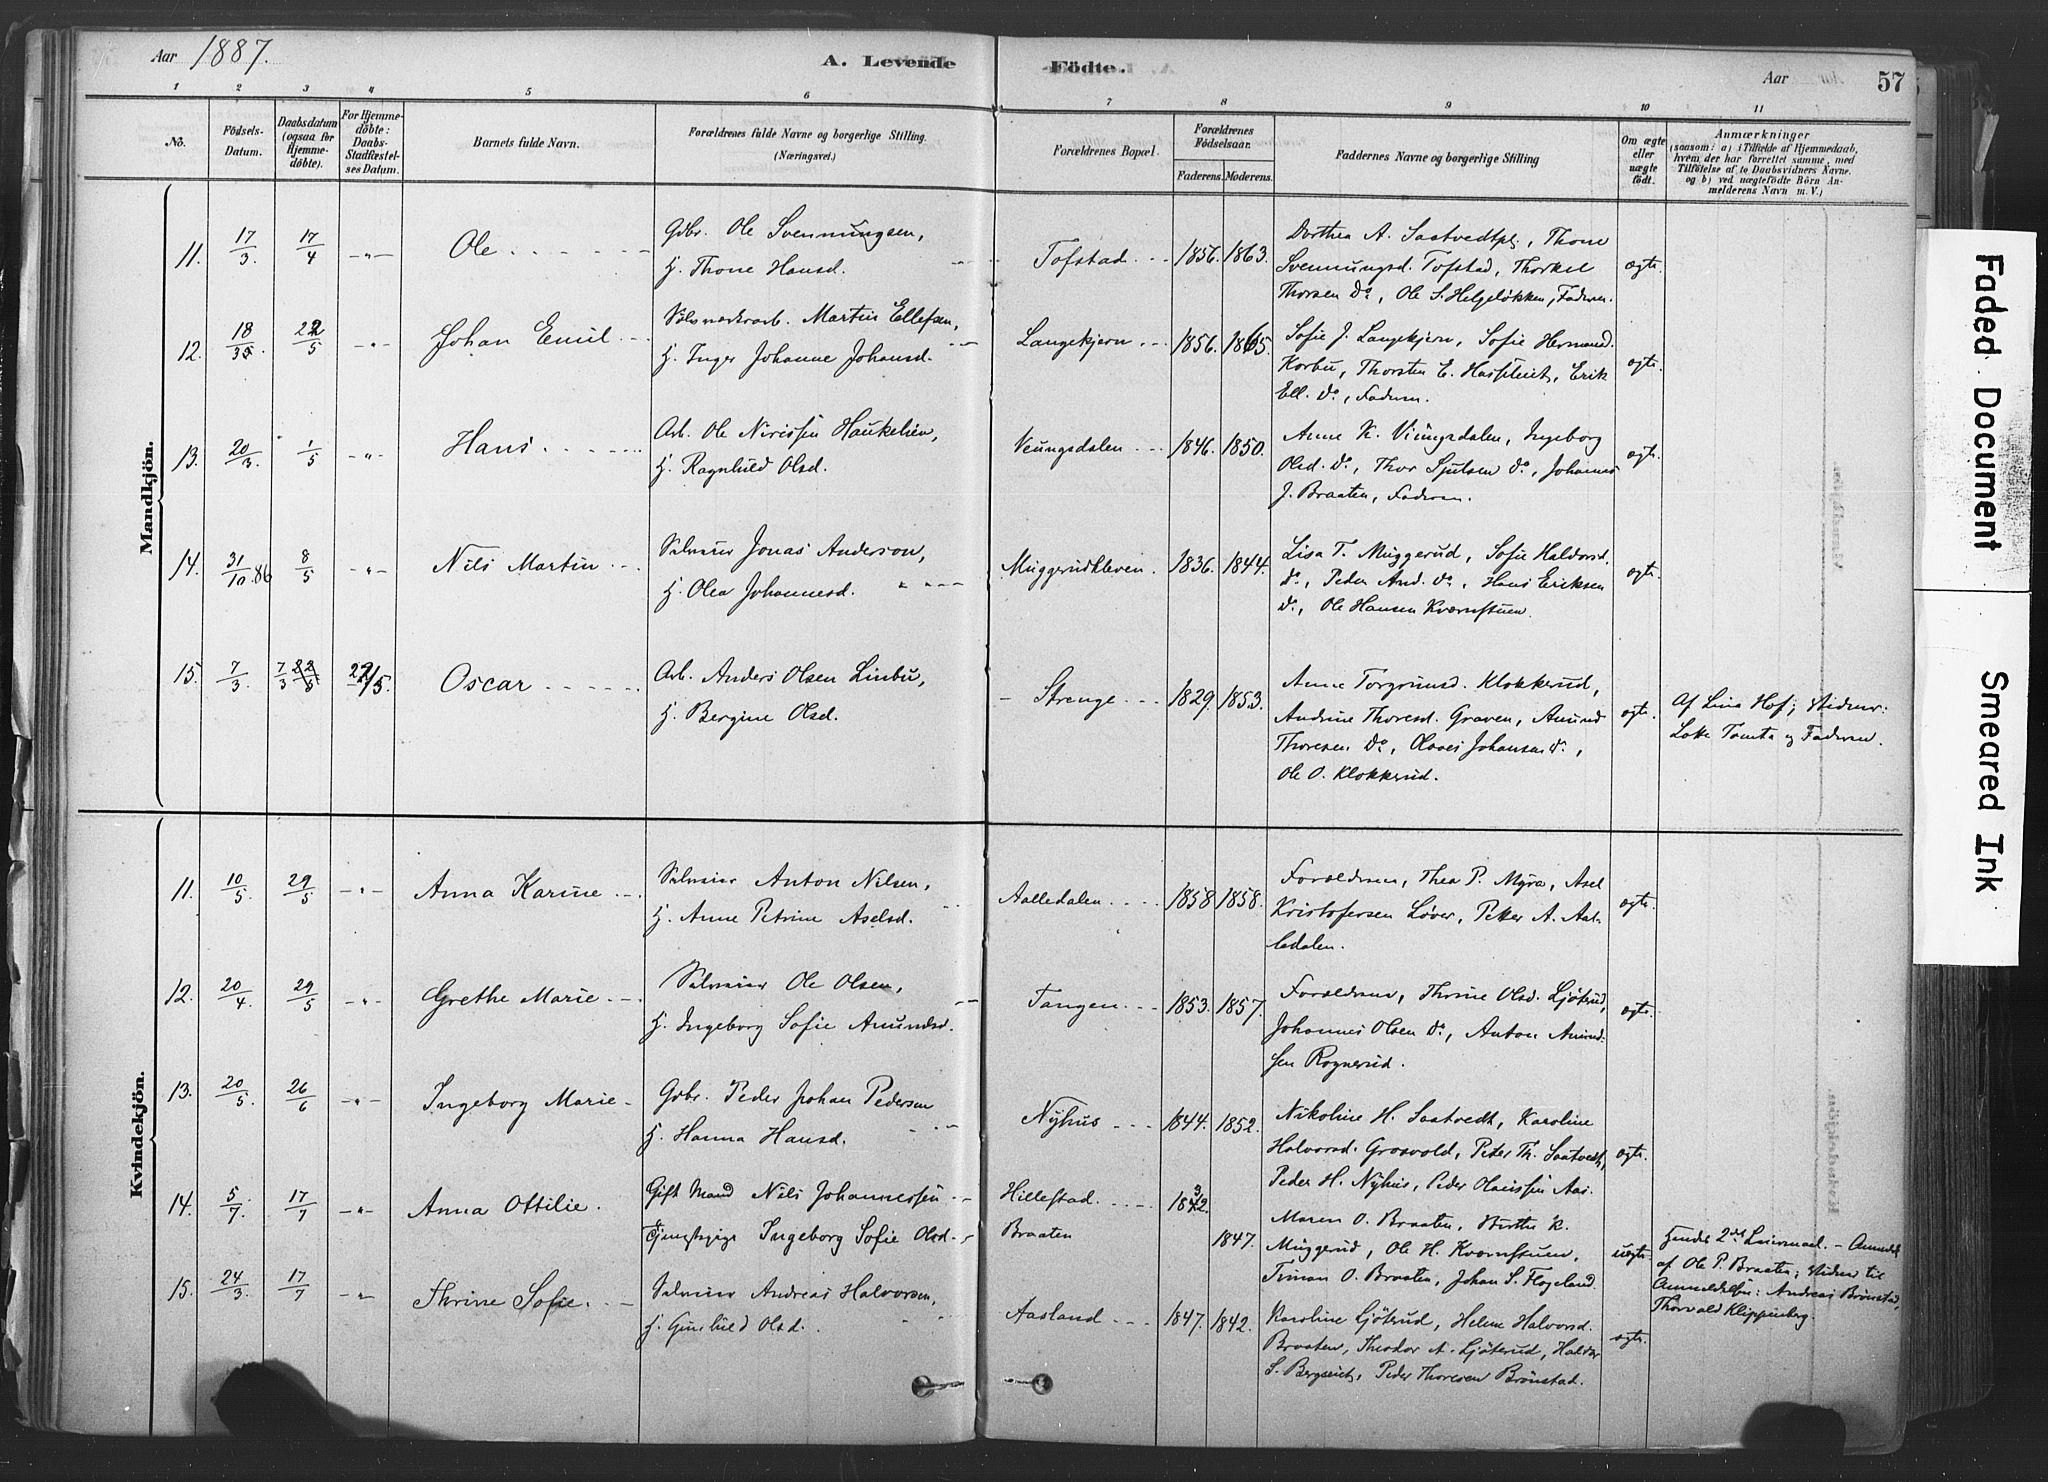 Aar 1887.
A. Levende Födte.
Aar
57
1 2 3 4 5 6 7 8 9 10 11
No.
Födsels-Datum.
Daabsdatum (ogsaa for Hjemmedöbte).
For Hjemmedöbte: Daabs-Stadfæstelses Datum.
Barnets fulde Navn.
Forældrenes fulde Navne og borgerlige Stilling. (Næringsvei.)
Forældrenes Bopæl.
Forældrenes Födselsaar.
Faderens. Moderens.
Faddernes Navne og borgerlige Stilling
Om ægte eller uægte födt.
Anmærkninger
(saasom: a) i Tilfælde af Hjemmedaab, hvem der har forrettet samme, med Tilföielse af to Daabsvidners Navne, og b) ved uægtefödte Börn Anmelderens Navn m. V.)
Mandkjön.
11. 17/3. 17/4 -"- Ole
Gdbr. Ole Svennungsen,
H. Thone Hansd.
Tofstad 1856. 1863.
Dorthea A. Saatvedtpl., Thone
Svennungsd. Tofstad, Thorkel
Thorsen do, Ole S. Helgeløkken, Faderen.
ægte.
12. 18/3. 22/5 -"- Johan Emil
Sølvværksarb. Martin Ellefsen,
H. Inger Johanne Johansd.
Langekjern 1856. 1865.
Sofie J. Langekjern, Sofie Hermand.
Korbu, Thorsten E. Hasselknt, Erik
Ell. do, Faderen.
ægte.
13. 20/3. 1/5 -"- Hans
Arb. Ole Nirissen Haukelien,
H. Ragnhild Olsd.
Veungsdalen 1846. 1850.
Anne K. Viungsdalen, Ingeborg
Olsd. do, Thor Sjulsen do, Johannes
J. Braaten, Faderen.
ægte.
14. 31/10.86 8/5 -"- Nils Martin
Selveier Jonas Anderson,
H. Olea Johannesd.
Muggerudkleven. 1836. 1844.
Lisa T. Muggerud, Sofie Haldorsd.
do, Peder And. do, Hans Eriksen
do, Ole Hansen Kvernstuen.
ægte.
15. 7/3. 7/3 22/5 22/5. Oscar
Arb. Anders Olsen Linbu,
H. Bergine Olsd.
Strenge 1829. 1853.
Anne Torgrimsd. Klokkerud,
Andrine Thoresd. Graven, Amund
Thoresen do, Olaves Johansen do,
Ole O. Klokkerud.
ægte.
Af Lina Hof; Vidner:
Lotte Tomta og Faderen.
Kvindekjön.
11. 10/5. 29/5 -"- Anna Karine
Selveier Anton Nilsen,
H. Anne Petrine Aselsd.
Aalledalen 1858 1858.
Forældrene, Thea P. Myra, Asel
Kristofersen Løver, Petter A. Aal-
ledalen.
ægte.
12. 20/4. 29/5 -"- Grethe Marie
Selveier Ole Olsen,
H. Ingeborg Sofie Amundsd.
Tangen 1853. 1857.
Forældrene, Thrine Olsd. Ljøterud,
Johannes Olsen do, Anton Amund-
sen Rognerud.
ægte.
13. 20/5. 26/6 -"- Ingeborg Marie
Gdbr. Peder Johan Pedersen
H. Hanna Hansd.
Nyhus 1844. 1852.
Nikoline H. Saatvedt, Karoline
Halvorsd. Grosvold, Peter Th. Saatvedt,
Peder H. Nyhus, Peder Olavessen Aas.
ægte.
14. 5/7. 17/7 -"- Anna Ottilie.
Gift Mand Nils Johannessen
Tjenestpige Ingeborg Sofie Olsd.
Hillestad.
Braaten
1847.
Maren O. Braaten, Birthe K.
Muggerud, Ole H. Kvernstuen,
Timan O. Braaten, Johan S. Flogeland.
uægte.
Hendes 2det Leiermaal. - Anmeldt
af Ole P. Braaten; Vidner til
Anmeldelsen: Andreas Brønstad,
Thorvald Klippenberg.
15. 24/3. 17/7 -"- Thrine Sofie.
Selveier Andreas Halvorsen,
H. Gunhild Olsd.
Aasland 1847. 1842.
Karoline Ljøterud, Helene Halvorsd.
Braaten, Theodor A. Ljøterud, Haldor
S. Bergseie, Peder Thoresen Brønstad.
ægte.
Faded Document
Smeared Ink